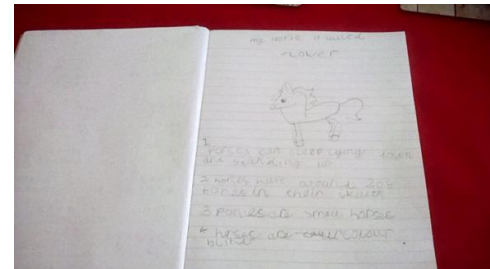 my horse is called
1
horses can sleep lying down
and standing up
2 horses have around 205
bones in their
3 ponies are small horses
4 horses are colour
blind